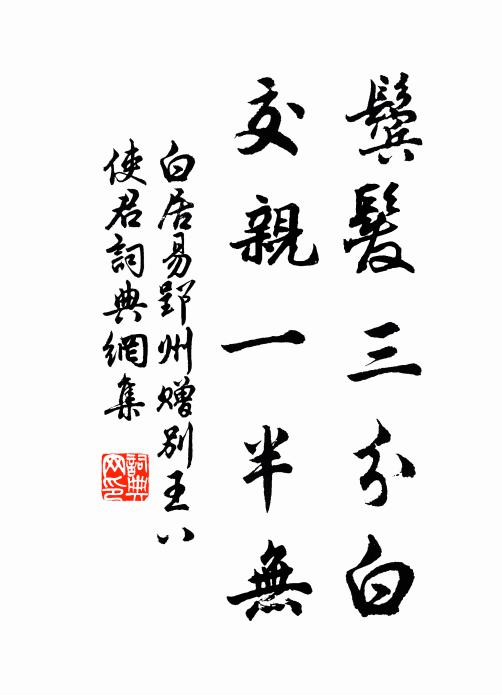 鬢髮三分白
交親一半無
白居易郢州贈別王八
使君詞典網集
詞典网印